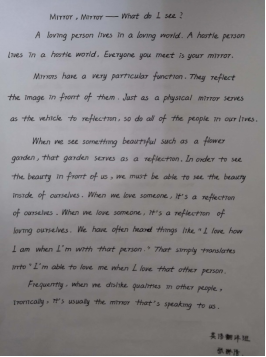 Mirror, Mirror — What do I see?
A loving person lives in a loving world. A hostile person
lives in a hostile world. Everyone you meet is your mirror.
Mirrors have a very particular function. They reflect
the image in front of them. Just as a physical mirror serves
as the vehicle to reflection, so do all of the people in our lives.
When we see something beautiful such as a flower
garden, that garden serves as a reflection. In order to see
the beauty in front of us, we must be able to see the beauty
inside of ourselves. When we love someone, it's a reflection
of ourselves. When we love someone, it's a reflection of
loving ourselves. We have often heard things like "I love how
I am when I'm with that person." That simply translates
into "I'm able to love me when I love that other person.
Frequently, when we dislike qualities in other people,
ironically, it's usually the mirror that's speaking to us.